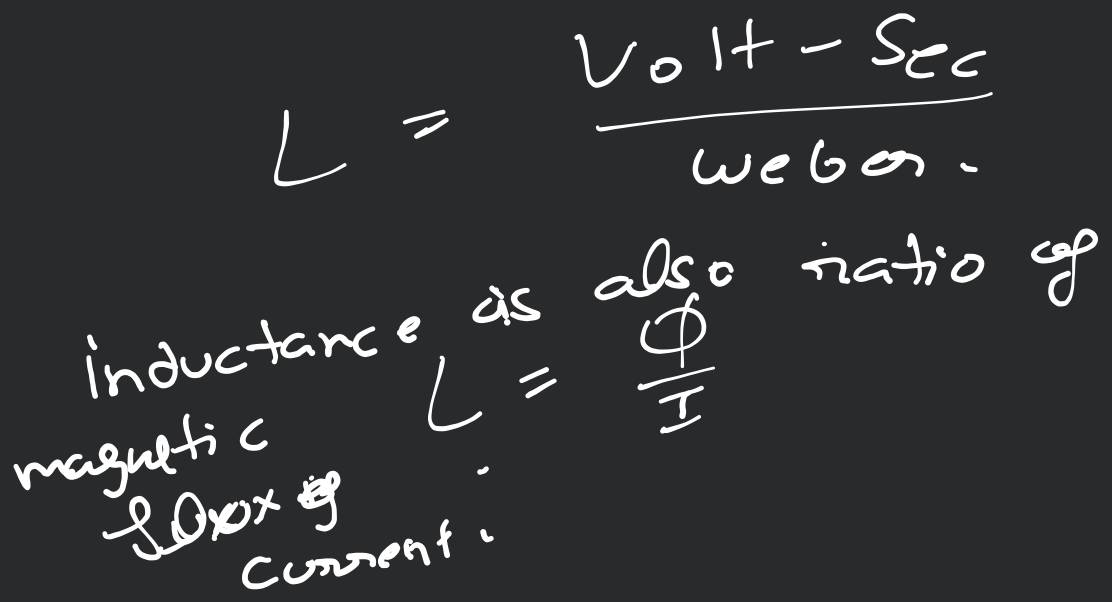 L = Volt - Sec
weber.
inductance is also ratio of
L = Φ
I
magnetic
flux of
current.